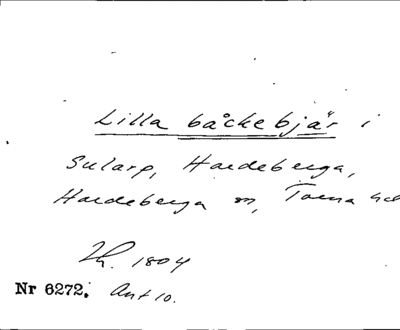 Lilla båckebjär i
Sularp, Hardeberga,
Hardeberga sn, Torna hd
1804
Nr 6272. Ant 10.